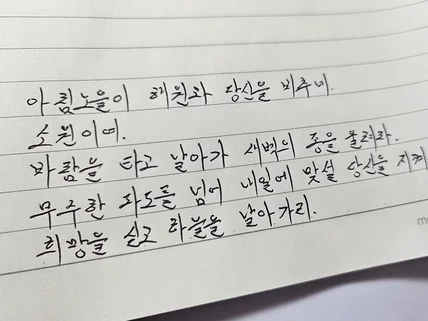 아침노을이 해원과 당신을 비추네.
소원이여.
바람을 타고 날아가 새벽의 종을 울려라.
무수한 파도를 넘어 내일에 맞설 당신을 지켜
희망을 싣고 하늘을 날아가리.